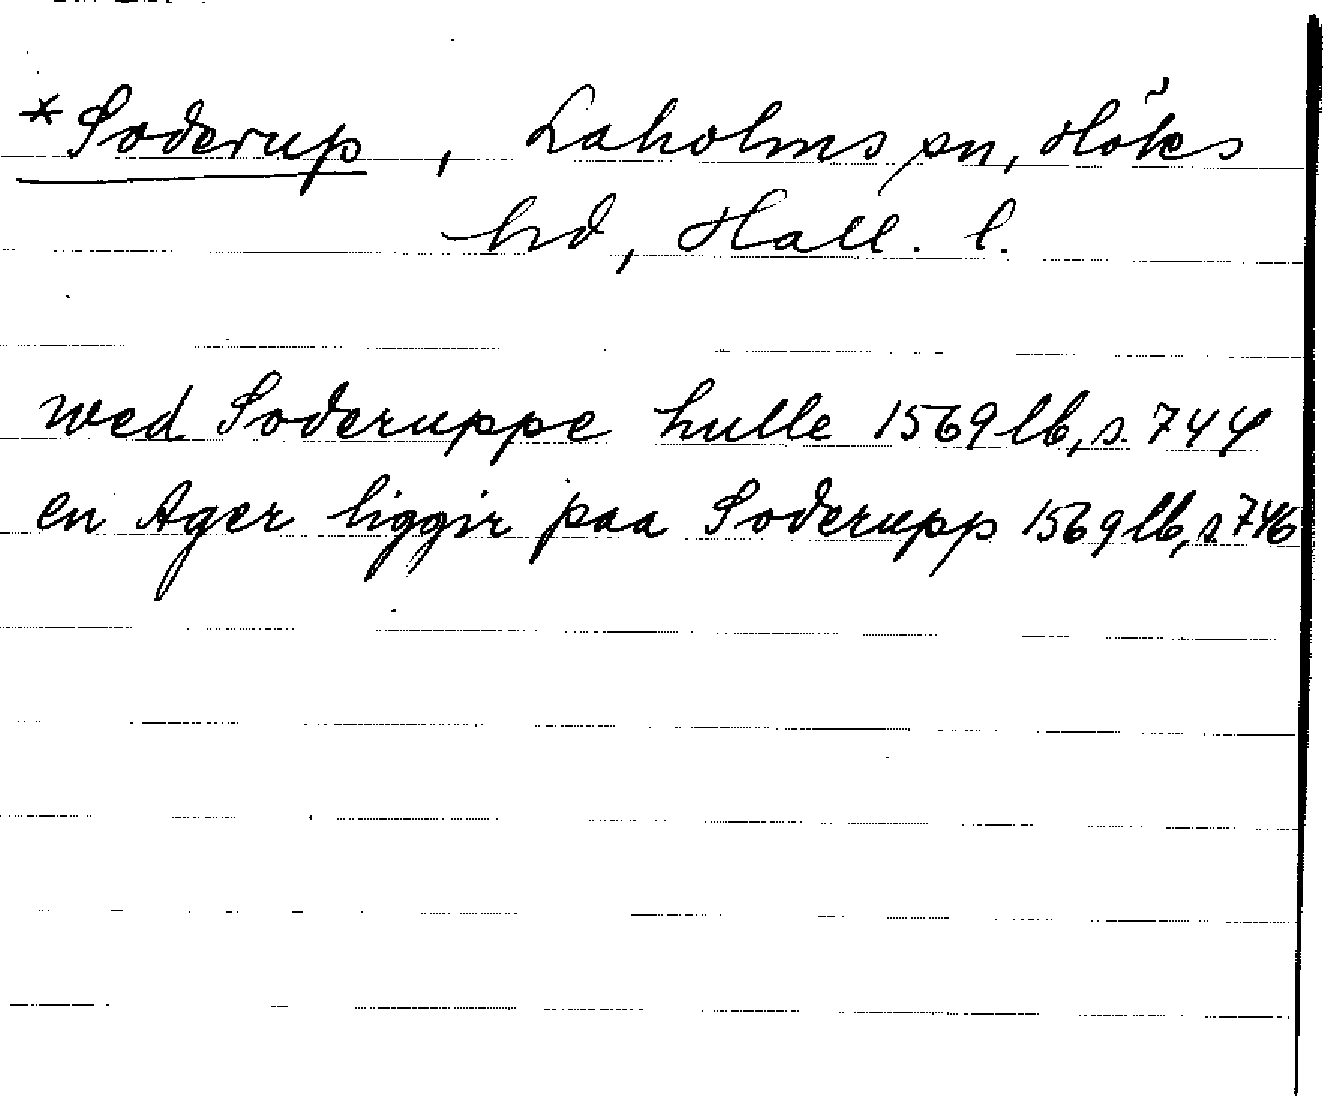 *Soderup, Laholms sn, Höks
hd, Hall. l.
wed Soderuppe hulle 1569 lb, s. 744
en Ager liggir paa Soderupp 1569 lb, s 746